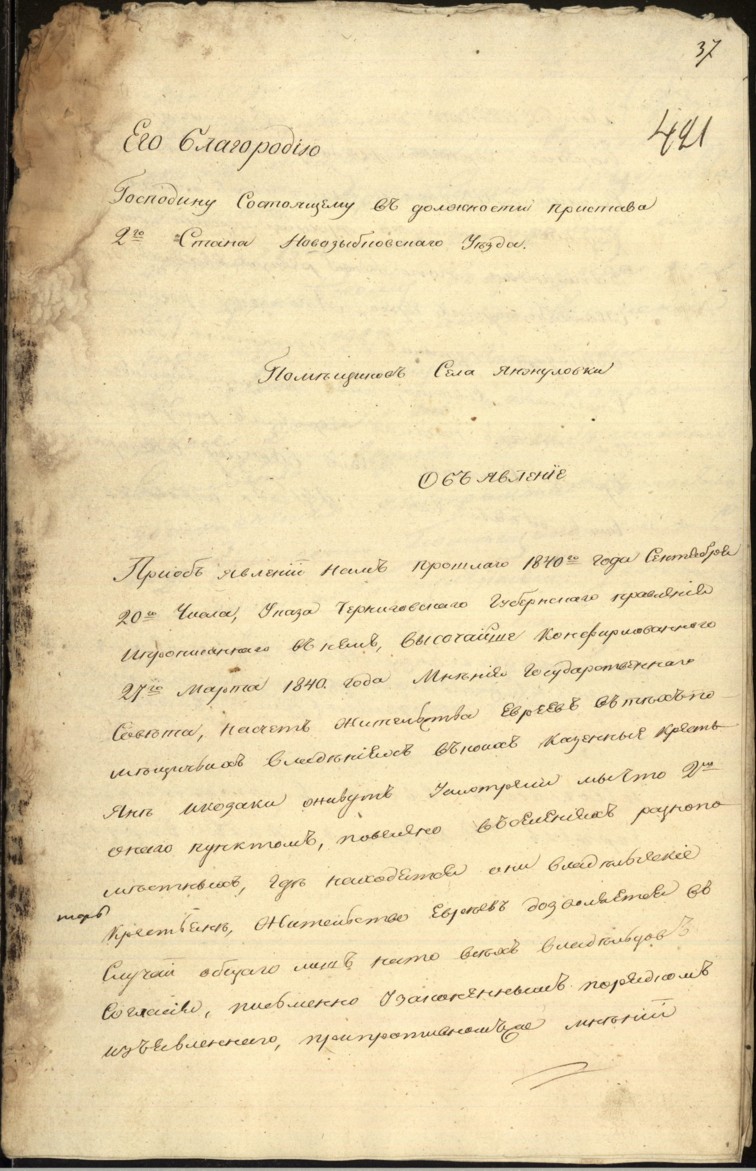 37
421
Его Благородію
Господину Состоящему въ должности пристава
2го Стана Новозыбковскаго Уѣзда.
Помѣщиковъ Села
Объявленіе
Приобъ явленіи намъ прошлаго 1840го года Сентебря
20го Числа, Указа Черниговскаго Губернскаго правленія
ипрописаннаго внемъ, Высочайше Конфирмованнаго
27го Марта 1840 года Мнѣнія Государственнаго
Совѣта, насчетъ Жительства Евреевъ втѣхъ по
мѣщичьихъ владѣніяхъ вкоихъ Казенные Кресть
Яне икозаки живутъ Усмотрели мы что 2мъ
онаго пунктомъ, повелено въимѣніяхъ разнопо
мѣстныхъ, гдѣ находятся они владѣльческіе
Крестьяне, Жительство Евреевъ дозволяется въ
Случаи общаго нато всѣхъ владѣльцовъ
Согласія, письменно Узаконеннымъ порядкомъ
изъявленнаго, припротивномъже мнѣніи